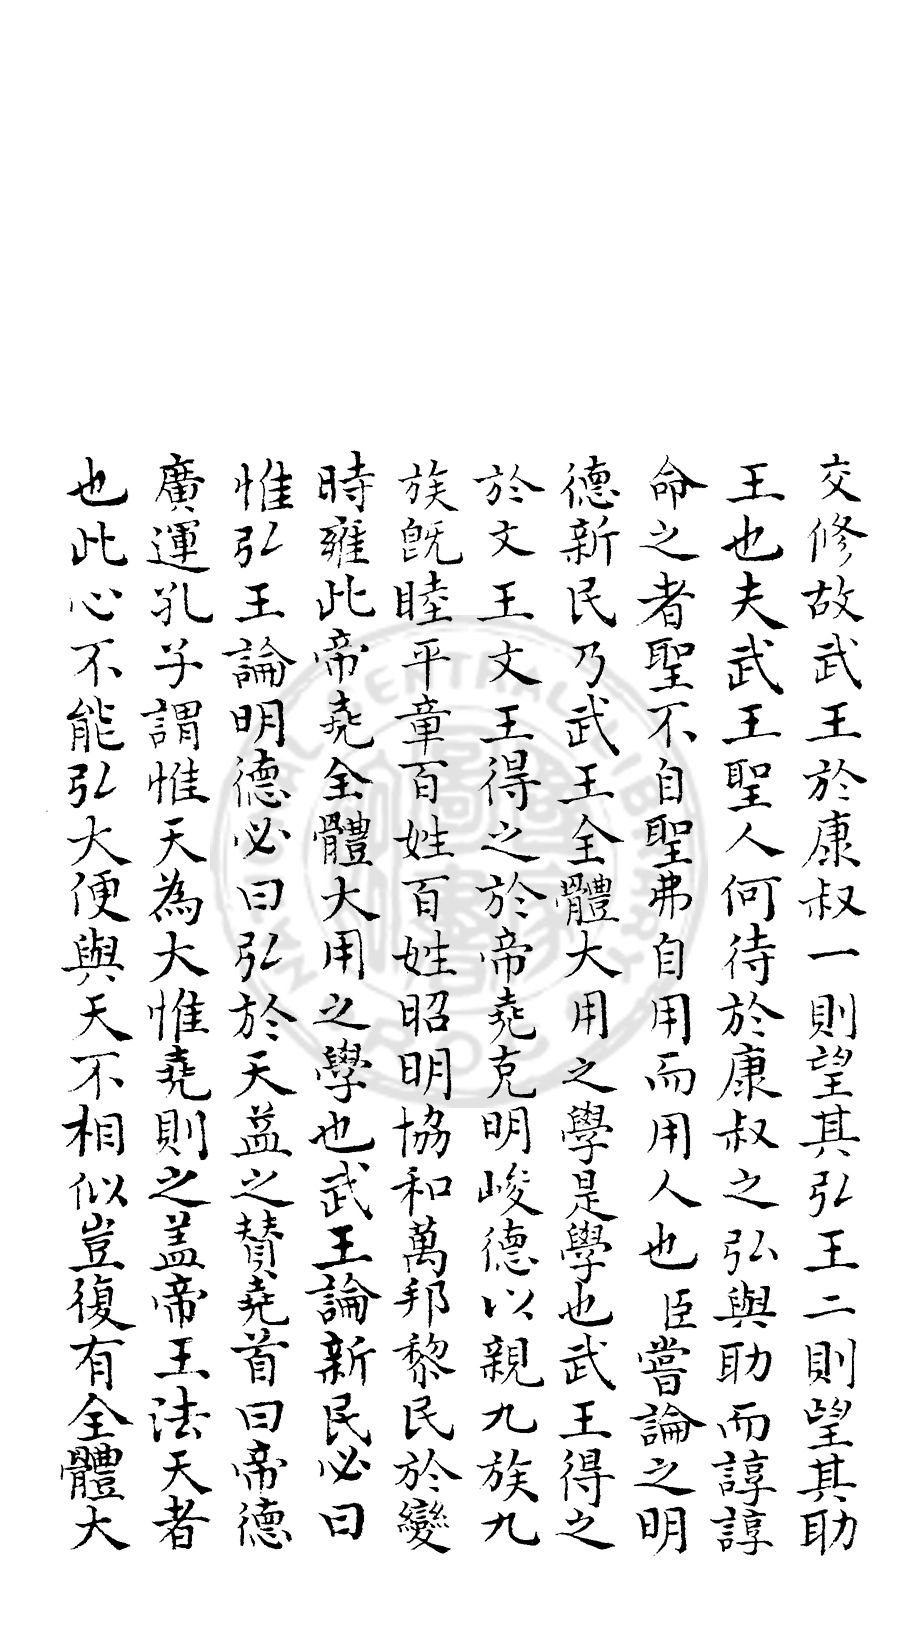 交修故武王於康叔一則望其弘王二則望其助
王也夫武王聖人何待於康叔之弘與助而諄諄
命之者聖不自聖弗自用而用人也臣嘗論之明
德新民乃武王全體大用之學是學也武王得之
於文王文王得之於帝堯克明峻德以親九族九
族既睦平章百姓百姓昭明協和萬邦黎民於變
時雍此帝堯全體大用之學也武王論新民必曰
惟弘王論明德必曰弘於天益之贊堯首曰帝德
廣運孔子謂惟天為大惟堯則之盖帝王法天者
也此心不能弘大便與天不相似豈復有全體大